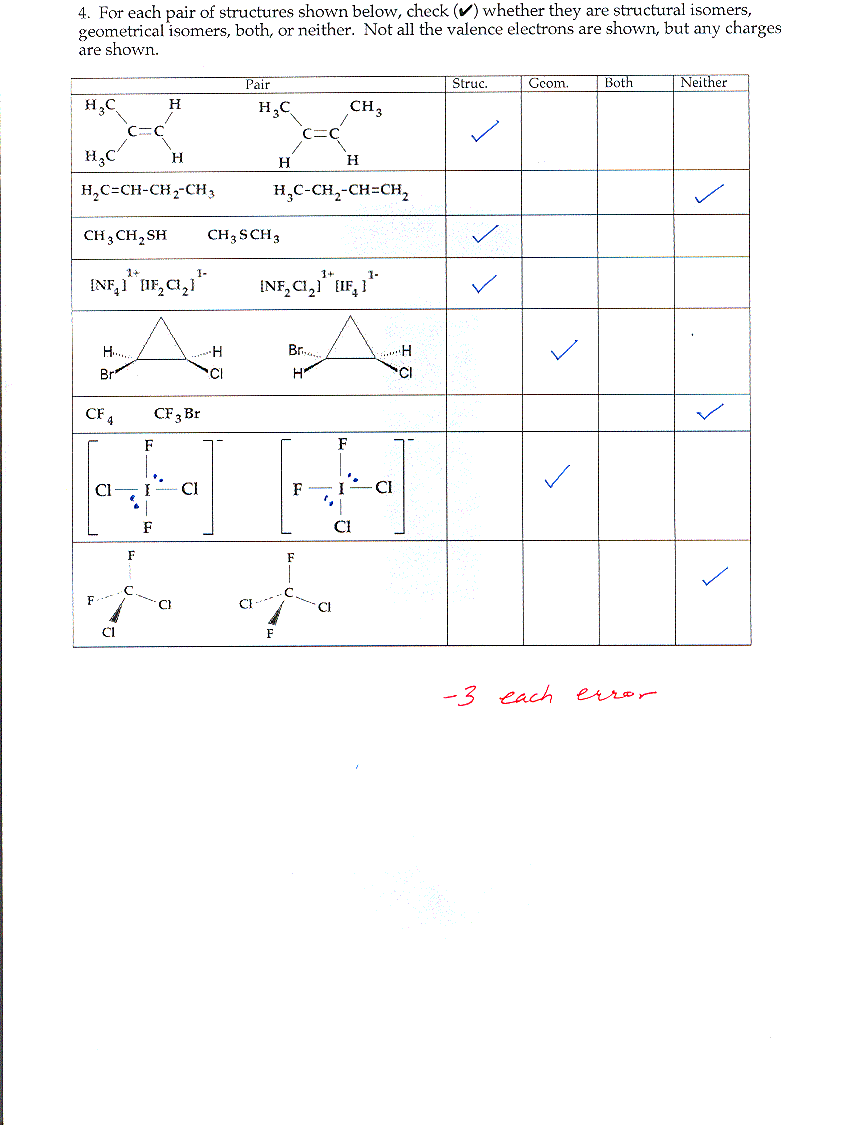 4. For each pair of structures shown below, check (✔) whether they are structural isomers,
geometrical isomers, both, or neither. Not all the valence electrons are shown, but any charges
are shown.
Pair Struc. Geom. Both Neither
H3C H H3C CH3
C=C C=C ✓
H3C H H H
H2C=CH-CH2-CH3 H3C-CH2-CH=CH2 ✓
CH3CH2SH CH3SCH3 ✓
[NF4]1+ [IF2Cl2]1- [NF2Cl2]1+ [IF4]1- ✓
H H Br H ✓
Br Cl H Cl
CF4 CF3Br ✓
F F
Cl I Cl F I Cl ✓
F Cl
F F
F C Cl Cl C Cl ✓
Cl F
-3 each error